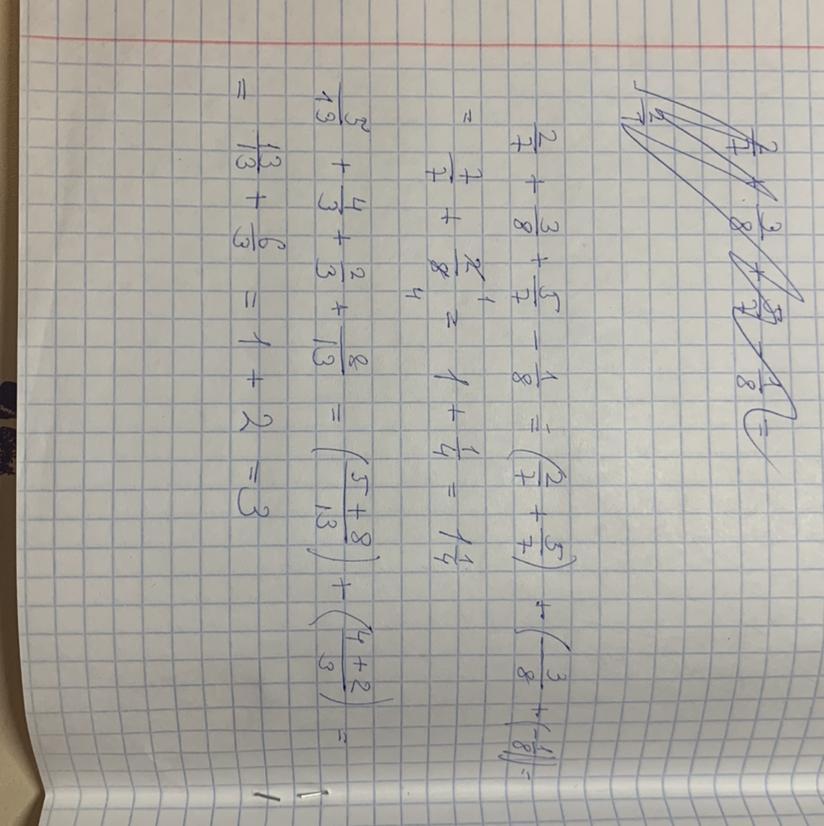 2/7 + 3/8 + 5/7 - 1/8 =
2/7
2/7 + 3/8 + 5/7 - 1/8 = (2/7 + 5/7) + (3/8 + (-1/8)) =
= 7/7 + 2/8 1 4 = 1 + 1/4 = 1 1/4
5/13 + 4/3 + 2/3 + 8/13 = (5+8/13) + (4+2/3) =
= 13/13 + 6/3 = 1 + 2 = 3